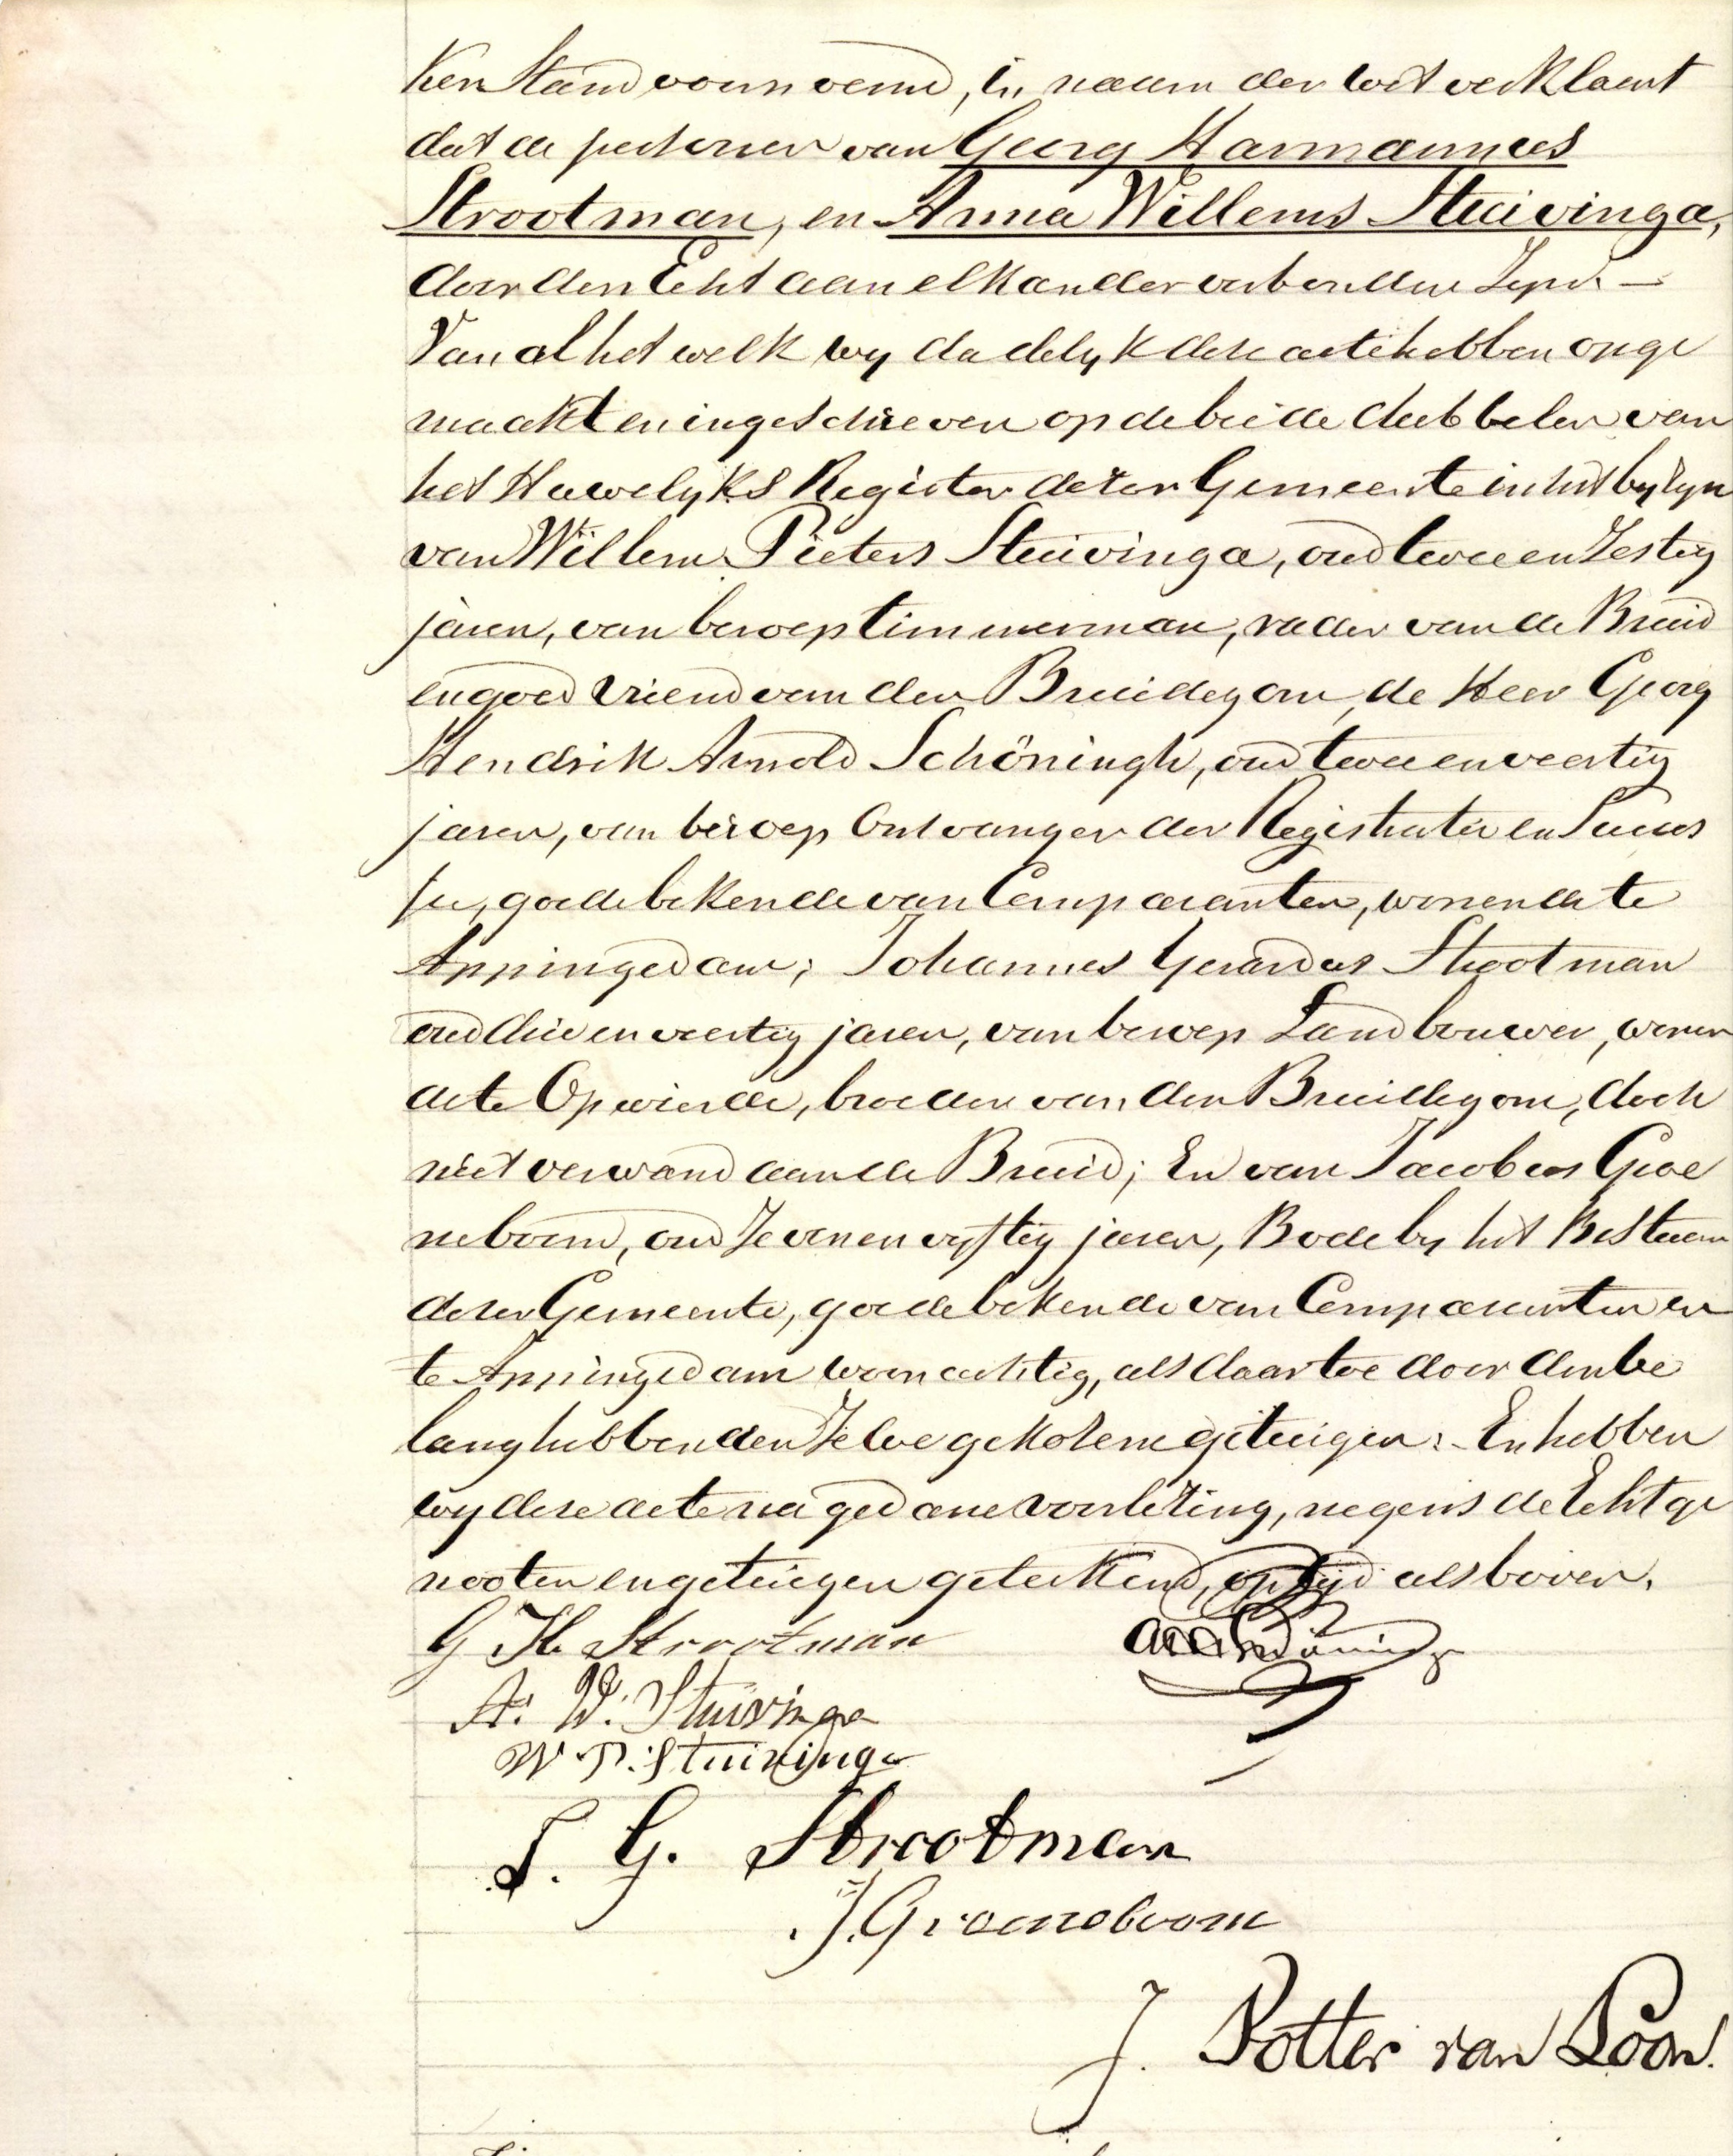 ken Stand voornoemd, in naam der wet verklaart
dat de personen van Georg Harmannus
Strootman, en Anna Willems Stuivinga,
door den Echt aan elkander verbonden zyn. —
Van al het welk wy dadelyk deze acte hebben opge
maakt en ingeschreven op de beide dubbelen van
het Huwelyks Register dezer Gemeente in het byzyn
van Willem Pieters Stuivinga, oud twee en zestig
jaren, van beroep timmerman, vader van de Bruid
en goed vriend van den Bruidegom, de Heer Georg
Hendrik Arnold Schöningh, oud twee en veertig
jaren, van beroep Ontvanger der Registratie en Succes
sie, goede bekende van Comparanten, wonende te
Appingedam; Johannes Gerardus Strootman
oud drie en veertig jaren, van beroep Landbouwer, wonen
de te Opwierde, broeder van den Bruidegom, doch
niet verwand aan de Bruid; En van Jacobus Groe
neboom, oud zeven en vyftig jaren, Bode by het Bestuur
dezer Gemeente, goede bekende van Comparanten en
te Appingedam woonachtig, als daartoe door den be
langhebbenden zelve gekozene getuigen. En hebben
wy deze acte na gedane voorlezing, nevens de Echtge
nooten en getuigen geteekend, op tyd als boven.
G H. Strootman
A. W. Stuivinga
W. P. Stuivinga
J. G. Strootman
J. Groeneboom
J. Potter van Loon.